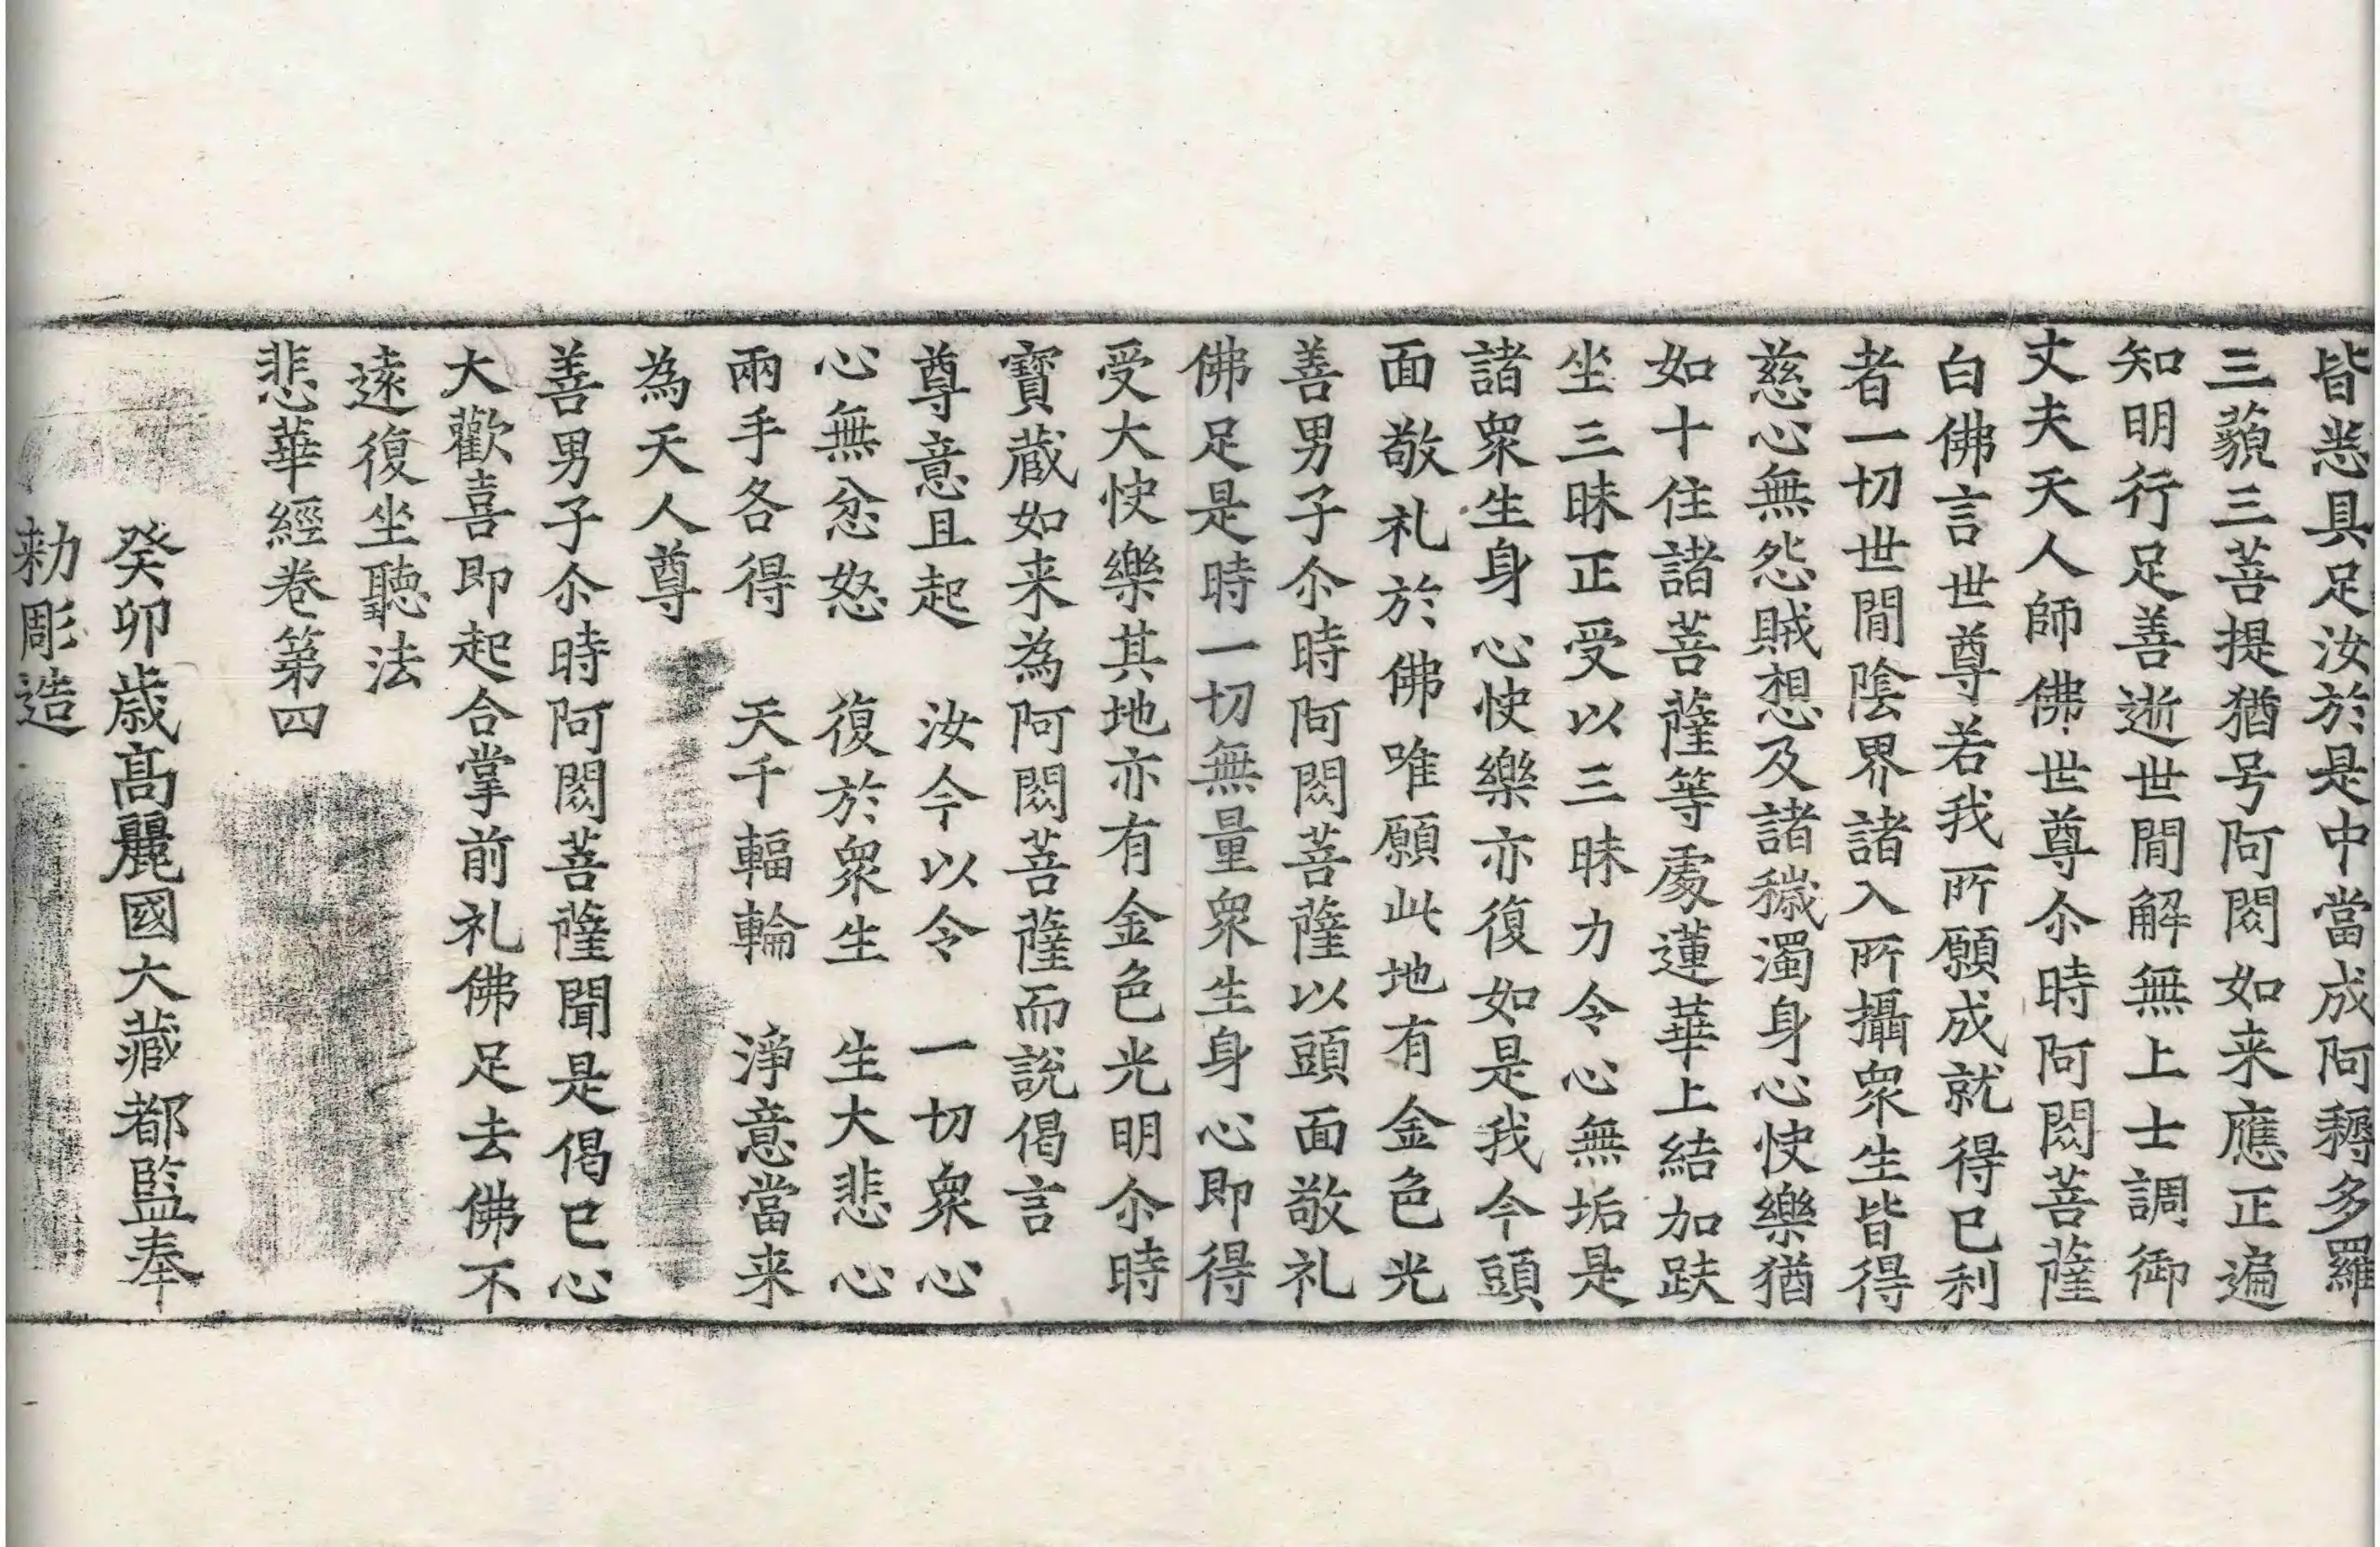 皆悉具足汝於是中當成阿耨多羅
三藐三菩提猶号阿閦如来應正遍
知明行足善逝世間解無上士調御
丈夫天人師佛世尊尒時阿閦菩薩
白佛言世尊若我所願成就得已利
者一切世間陰界諸入所攝衆生皆得
慈心無怨賊想及諸穢濁身心快樂猶
如十住諸菩薩等處蓮華上結加趺
坐三昧正受以三昧力令心無垢是
諸衆生身心快樂亦復如是我今頭
面敬礼於佛唯願此地有金色光
善男子尒時阿閦菩薩以頭面敬礼
佛足是時一切無量衆生身心即得
受大快樂其地亦有金色光明尒時
寶藏如来為阿閦菩薩而說偈言
尊意且起　汝今以令　一切衆心
心無忿怒　復於衆生　生大悲心
兩手各得　天千輻輪　淨意當来
為天人尊
善男子尒時阿閦菩薩聞是偈已心
大歡喜即起合掌前礼佛足去佛不
遠復坐聽法
悲華經卷第四
癸卯歲高麗國大藏都監奉
勑彫造